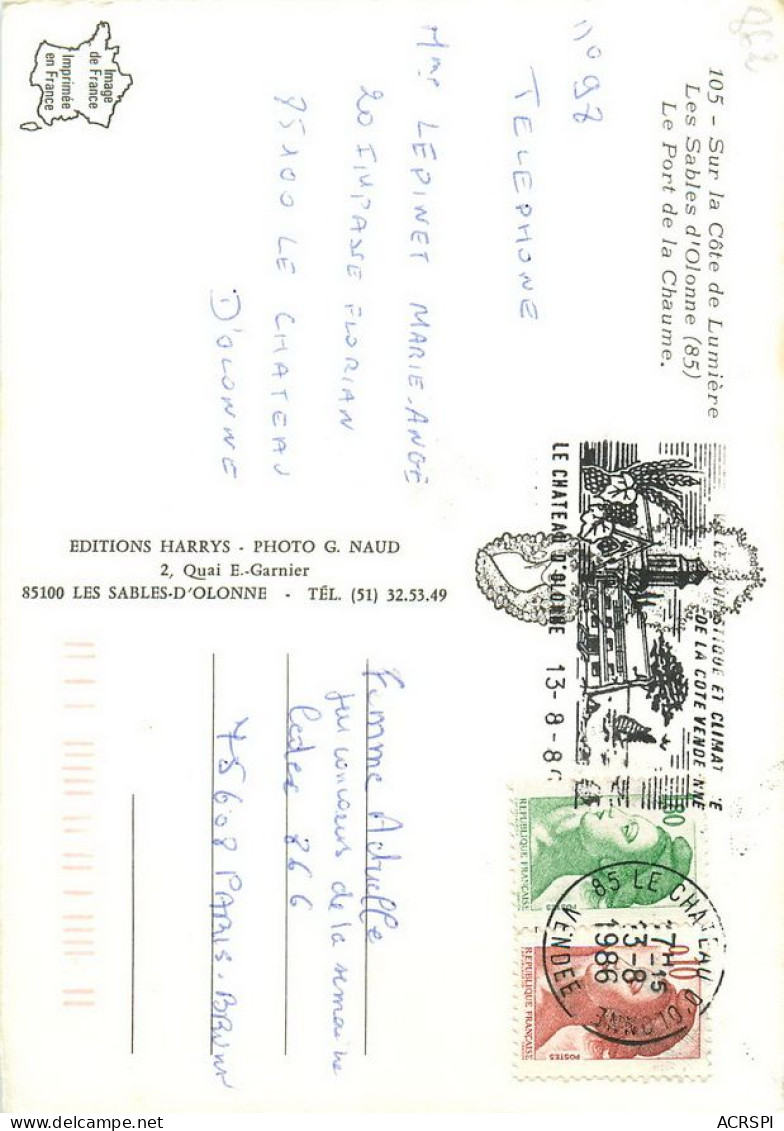 105 - Sur la Côte de Lumière
Les Sables d'Olonne (85)
Le Port de la Chaume.
n° 98
TELEPHONE
Mme LEPINET MARIE-ANGE
20 IMPASSE FLORIAN
85100 LE CHATEAU
D'OLONNE
Image
de France
Imprimée
en France
EDITIONS HARRYS - PHOTO G. NAUD
2, Quai E.-Garnier
85100 LES SABLES-D'OLONNE - TÉL. (51) 32.53.49
LE CHATEAU D'OLONNE 13-8-86
ET CLIMAT E
DE LA COTE VENDE NNE
REPUBLIQUE FRANÇAISE
80
POSTES
REPUBLIQUE FRANÇAISE
0,10
POSTES
85 LE CHATEAU D'OLONNE
17H15
13-8
1986
VENDEE
Femme Actuelle
jeu concours de la semaine
Cedex 866
75608 PARIS. BRUNE
862
ACRSPI